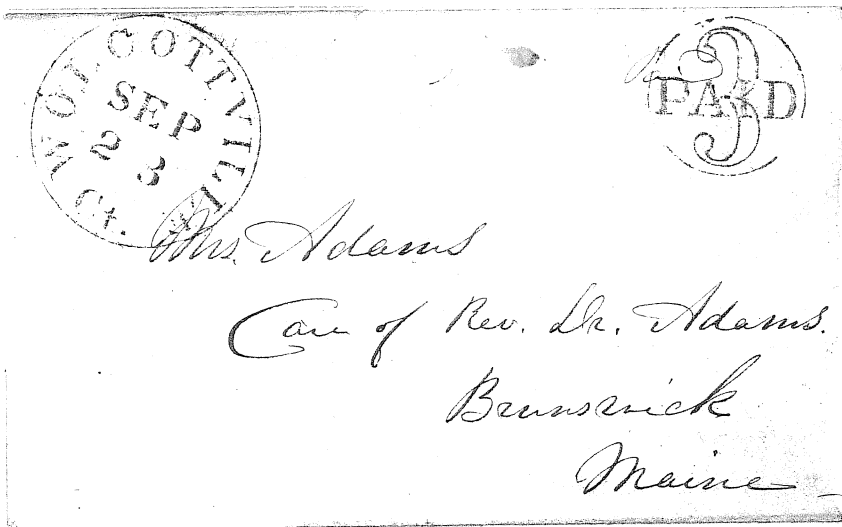 WOLCOTTVILLE Ct.
SEP
23
PAID
3
Mrs. Adams
Care of Rev. Dr. Adams.
Brunswick
Maine